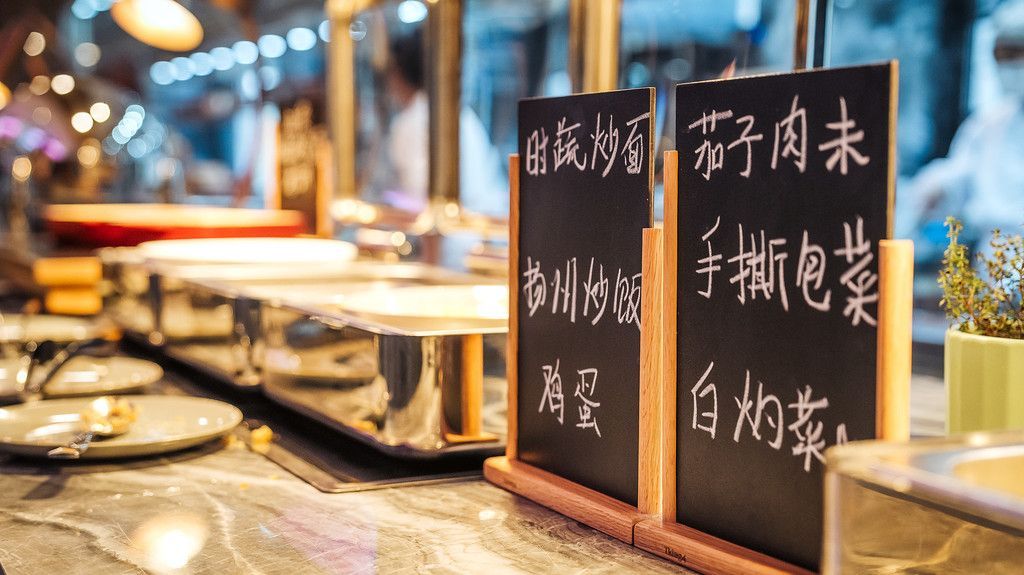 时蔬炒面
扬州炒饭
鸡蛋
茄子肉未
手撕包菜
白灼菜